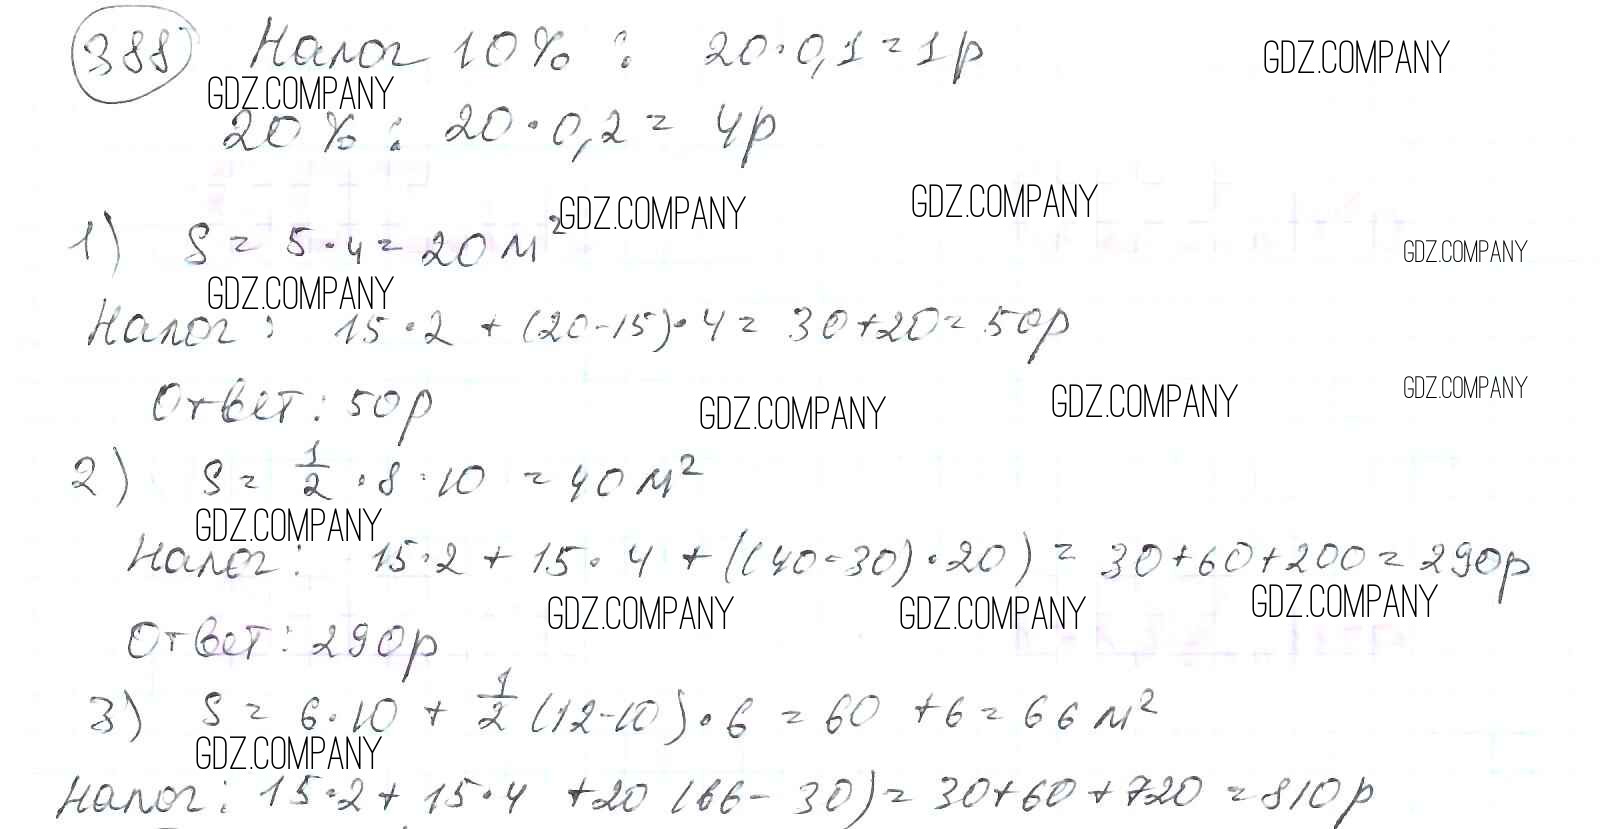 388 Налог 10% : 20·0,1=1р GDZ.COMPANY
GDZ.COMPANY
20% : 20·0,2= 4р
GDZ.COMPANY GDZ.COMPANY
1) S = 5·4=20м² GDZ.COMPANY
GDZ.COMPANY
Налог: 15·2 + (20-15)·4= 30+20=50р
Ответ: 50р GDZ.COMPANY GDZ.COMPANY GDZ.COMPANY
2) S = 1/2 ·8·10 =40м²
GDZ.COMPANY
Налог: 15·2 + 15·4 +((40-30)·20) = 30+60+200=290р
GDZ.COMPANY GDZ.COMPANY GDZ.COMPANY
Ответ: 290р
3) S = 6·10 + 1/2 (12-10)·6 =60 +6=66м²
GDZ.COMPANY
Налог: 15·2+ 15·4 +20 (66-30)= 30+60+720=810р